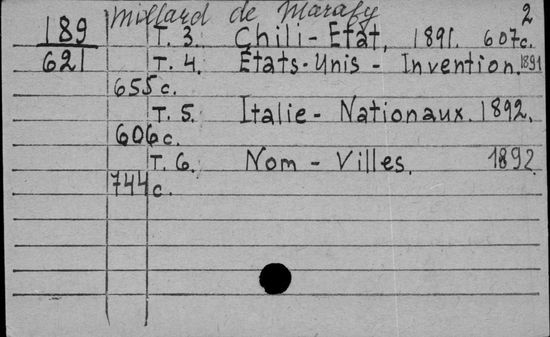 Millard de Marafy 2
189 T. 3. Chili-État, 1891. 607c.
621 T. 4. États-Unis - Invention. 1891
655c.
T. 5. Italie - Nationaux. 1892.
606c.
T. 6. Nom - Villes. 1892
744c.